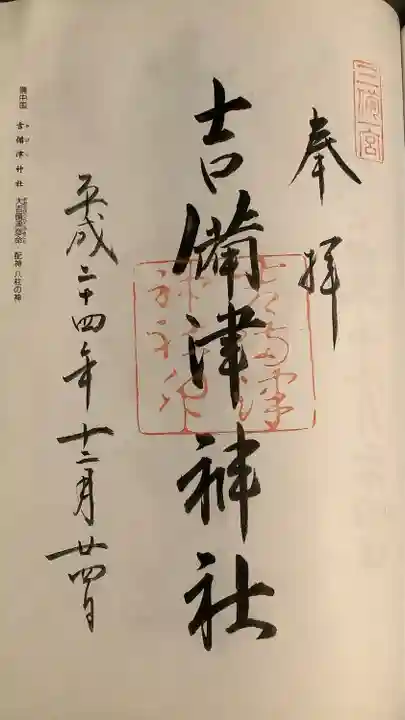 三備一宮
奉拝
吉備津神社
平成二十四年十二月廿四日
備中国 吉備津神社 大吉備津彦命 配神 八柱の神